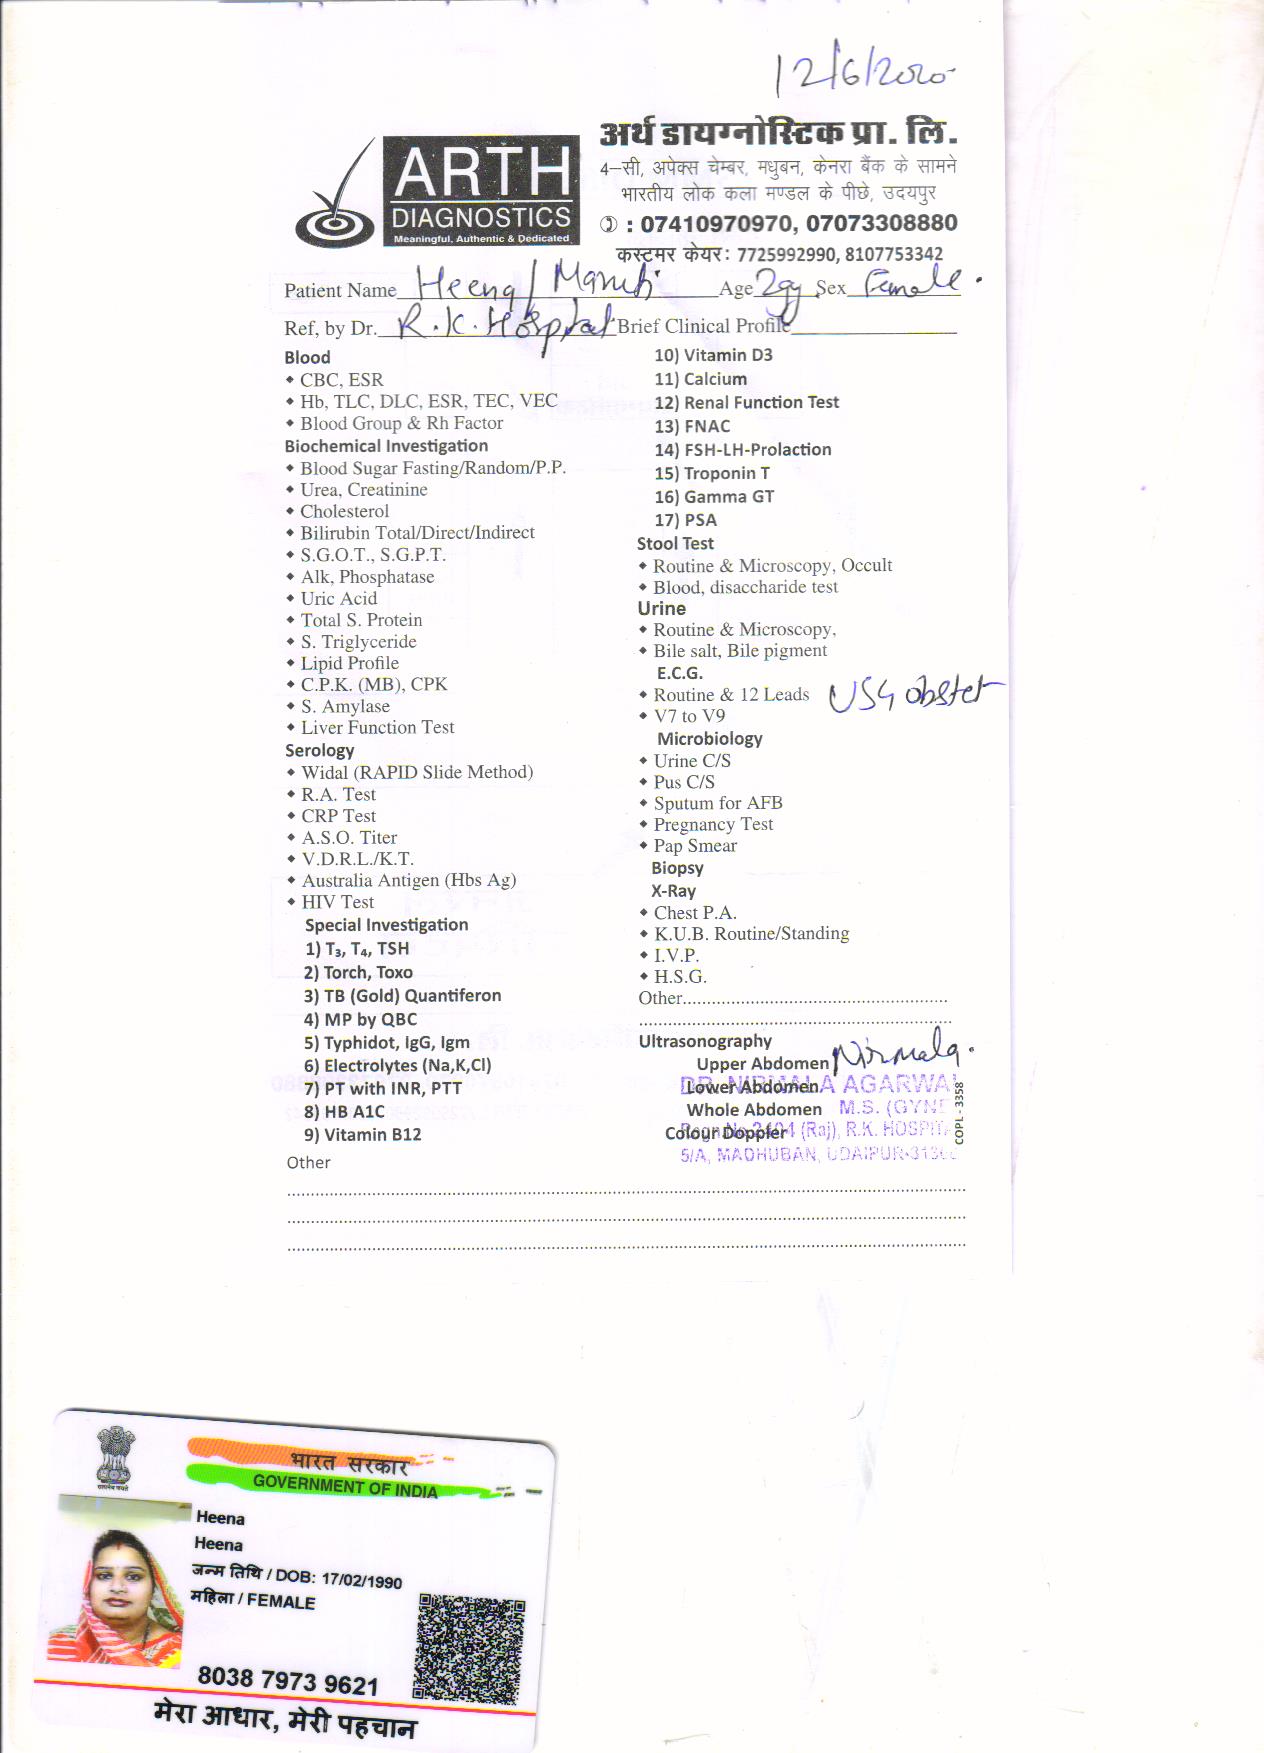 12/6/2020
अर्थ डायग्नोस्टिक प्रा. लि.
ARTH
DIAGNOSTICS
Meaningful, Authentic & Dedicated
4-सी, अपेक्स चेम्बर, मधुबन, केनरा बैंक के सामने
भारतीय लोक कला मण्डल के पीछे, उदयपुर
: 07410970970, 07073308880
कस्टमर केयर: 7725992990, 8107753342
Patient Name Heena/ Age Sex Female
Ref, by Dr. R.K. Hospital Brief Clinical Profile
Blood
CBC, ESR
Hb, TLC, DLC, ESR, TEC, VEC
Blood Group & Rh Factor
Biochemical Investigation
Blood Sugar Fasting/Random/P.P.
Urea, Creatinine
Cholesterol
Bilirubin Total/Direct/Indirect
S.G.O.T., S.G.P.T.
Alk, Phosphatase
Uric Acid
Total S. Protein
S. Triglyceride
Lipid Profile
C.P.K. (MB), CPK
S. Amylase
Liver Function Test
Serology
Widal (RAPID Slide Method)
R.A. Test
CRP Test
A.S.O. Titer
V.D.R.L./K.T.
Australia Antigen (Hbs Ag)
HIV Test
Special Investigation
1) T₃, T₄, TSH
2) Torch, Toxo
3) TB (Gold) Quantiferon
4) MP by QBC
5) Typhidot, IgG, Igm
6) Electrolytes (Na,K,Cl)
7) PT with INR, PTT
8) HB A1C
9) Vitamin B12
Other
10) Vitamin D3
11) Calcium
12) Renal Function Test
13) FNAC
14) FSH-LH-Prolaction
15) Troponin T
16) Gamma GT
17) PSA
Stool Test
Routine & Microscopy, Occult
Blood, disaccharide test
Urine
Routine & Microscopy,
Bile salt, Bile pigment
E.C.G.
Routine & 12 Leads USG obstet
V7 to V9
Microbiology
Urine C/S
Pus C/S
Sputum for AFB
Pregnancy Test
Pap Smear
Biopsy
X-Ray
Chest P.A.
K.U.B. Routine/Standing
I.V.P.
H.S.G.
Other
Ultrasonography
Upper Abdomen Nirmala
DR. NIRMALA AGARWA
Lower Abdomen
Whole Abdomen M.S. (GYNE
Colour Doppler (Raj), R.K. HOSPIT
5/A, MADHUBAN, UDAIPUR-313
COPL - 3358
भारत सरकार
GOVERNMENT OF INDIA
Heena
Heena
जन्म तिथि / DOB: 17/02/1990
महिला / FEMALE
8038 7973 9621
मेरा आधार, मेरी पहचान